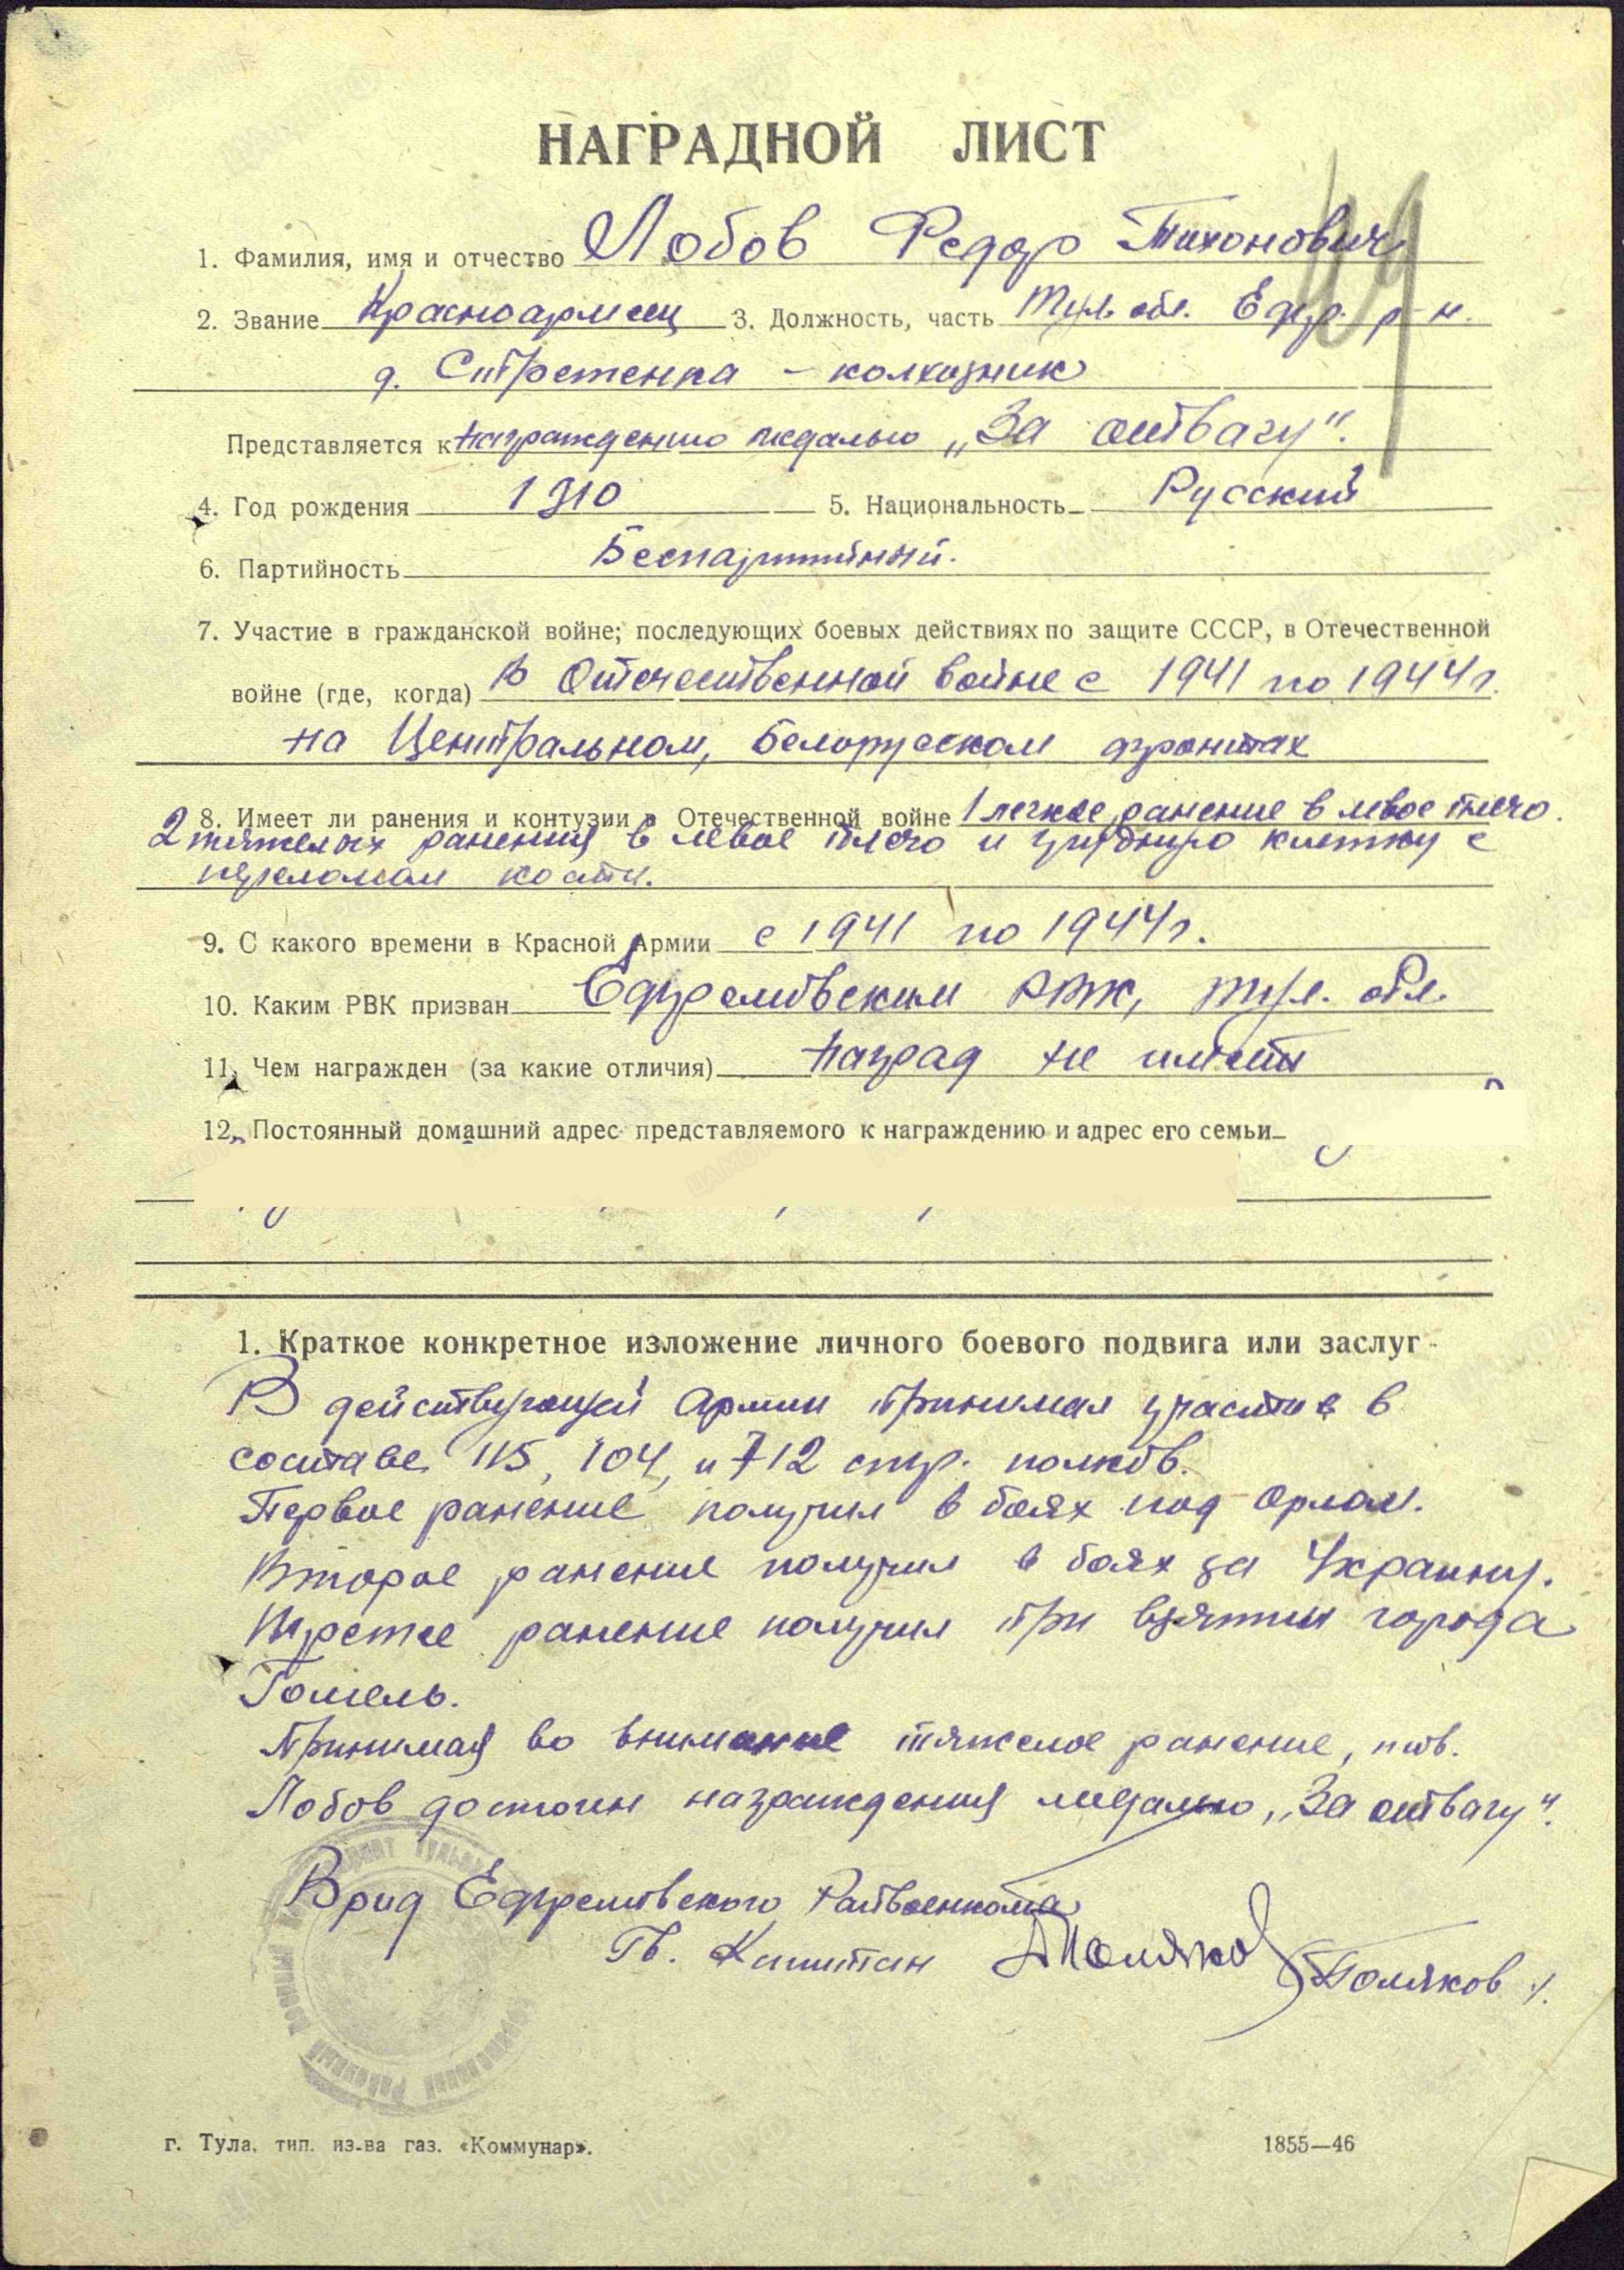 НАГРАДНОЙ ЛИСТ
1. Фамилия, имя и отчество Лобов Федор Тихонович
2. Звание Красноармеец 3. Должность, часть Тул. обл. Ефр. р-н.
д. Стретенка - колхозник
Представляется к награждению медалью „За отвагу".
4. Год рождения 1910 5. Национальность Русский
6. Партийность Беспартийный.
7. Участие в гражданской войне; последующих боевых действиях по защите СССР, в Отечественной
войне (где, когда) В Отечественной войне с 1941 по 1944 г.
на Центральном, Белорусском фронтах
8. Имеет ли ранения и контузии в Отечественной войне 1 легкое ранение в левое плечо.
2 тяжелых ранения в левое плечо и грудную клетку с
переломом кости.
9. С какого времени в Красной Армии с 1941 по 1944 г.
10. Каким РВК призван Ефремовским РВК, Тул. обл.
11. Чем награжден (за какие отличия) Наград не имеет
12. Постоянный домашний адрес представляемого к награждению и адрес его семьи
1. Краткое конкретное изложение личного боевого подвига или заслуг
В действующей армии принимал участие в
составе 115, 104, и 712 стр. полков.
Первое ранение получил в боях под Орлом.
Второе ранение получил в боях за Украину.
Третье ранение получил при взятии города
Гомель.
Принимая во внимание тяжелое ранение, тов.
Лобов достоин награждения медалью „За отвагу".
Врид Ефремовского Райвоенкома
Гв. Капитан Поляков /Поляков/.
г. Тула, тип. из-ва газ. «Коммунар». 1855—46